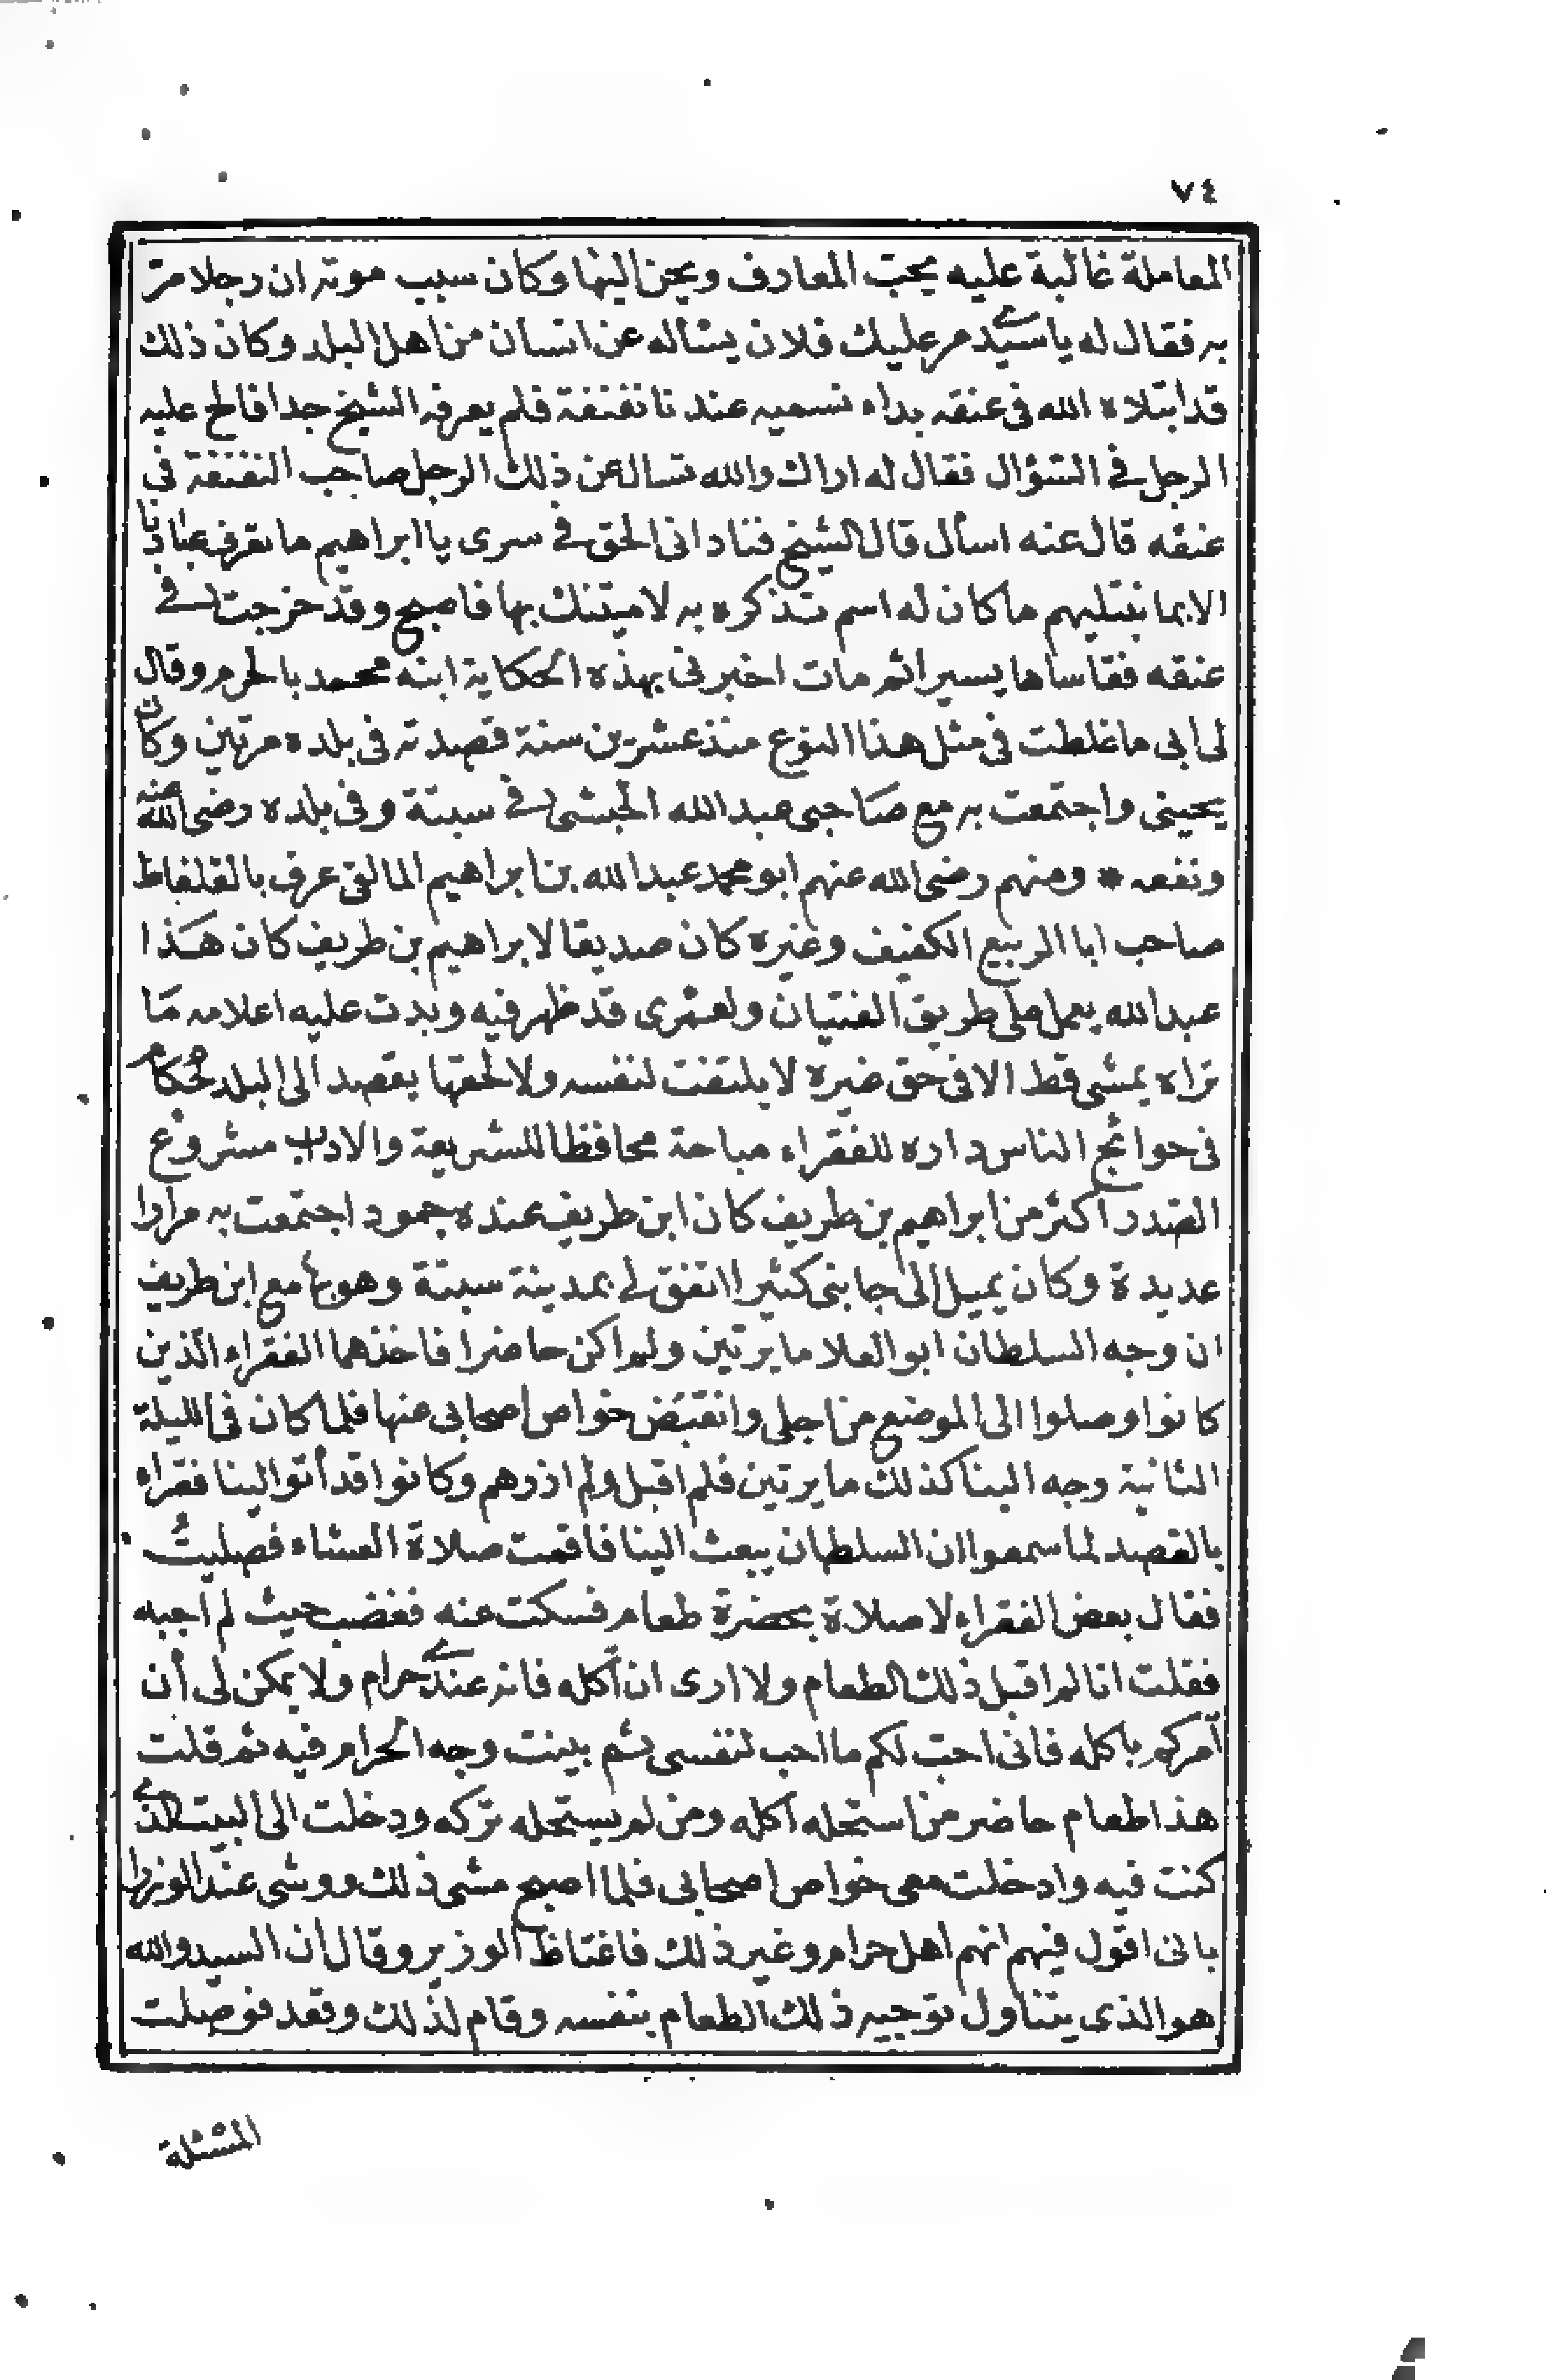 ٧٤
المعاملة غالبة عليه يحبّ المعارف ويحن اليها وكان سبب موته ان رجلا مرّ
به فقال له يا سيدي مر عليك فلان يسأله عن انسان من اهل البلد وكان ذلك
قد ابتلاه الله فى عنقه بداء نسميه عندنا نفنفة فلم يعرفه الشيخ جدا فالح عليه
الرجل في السّؤال فقال له اراك والله تسال عن ذلك الرجل صاحب النفنفة فى
عنقه قال عنه اسأل قال الشيخ فنادانى الحق في سرى يا ابراهيم ما تعرف عبادنا
الا بما نبتليهم ما كان له اسم تذكره به لاميتنك بها فاصبح وقد خرجت في
عنقه فقاساها يسيرا ثم مات اخبرنى بهذه الحكاية ابنه محمد بالحرم وقال
لى ابى ما غلطت فى مثل هذا النوع منذ عشرين سنة قصدته فى بلده مرتين وكان
يحينى واجتمعت به مع صاحبى عبد الله الحبشى في سبتة وفى بلده رضى الله عنه
ونفعه * ومنهم رضى الله عنهم ابو محمد عبد الله بن ابراهيم المالقى عرف بالفلفاط
صاحب ابا الربيع الكفيف وغيره كان صديقا لابراهيم بن طريف كان هذا
عبد الله يعمل على طريق الفتيان ولعمرى قد ظهر فيه وبدت عليه اعلامه مَا
تراه يمشى قط الا فى حق غيره لا يلتفت لنفسه ولا لحقها يقصد الى البلد حُكام
فى حوائج الناس داره للفقراء مباحة محافظا للشريعة والاداب مشروع
الصّدر اكثر من ابراهيم بن طريف كان ابن طريف عنده جمود اجتمعت به مرارا
عديدة وكان يميل الى جابنى كثيرا اتفق لي بمدينة سبتة وهو بها مع ابن طريف
ان وجه السلطان ابو العلا مايرتين ولم اكن حاضرا فاخذهما الفقراء الذين
كانوا وصلوا الى الموضع من اجلى وانقبض خواص اصحابى عنها فلما كان فى الليلة
الثانية وجه الينا كذلك مايرتين فلم اقبل ولم اذرهم وكانوا قد أتوا الينا فقراء
بالقصد لما سمعوا ان السلطان يبعث الينا فاقمت صلاة العشاء فصليتُ
فقال بعض الفقراء لا صلاة بحضرة طعام فسكت عنه فغضب حيث لم اجبه
فقلت انا لم اقبل ذلك الطعام ولا ارى ان آكله فانه عندي حرام ولا يمكن لى أن
آمركم باكله فانى احبّ لكم ما احب لنفسى ثم بينت وجه الحرام فيه ثم قلت
هذا طعام حاضر من استحله اكله ومن لم يستحله تركه ودخلت الى البيت الذي
كنت فيه وادخلت معى خواص اصحابى فلما اصبح مشى ذلك ووشى عند الوزراء
بانى اقول فيهم انهم اهل حرام وغير ذلك فاغتاظ الوزير وقال ان السيد والله
هو الذى يتناول توجيه ذلك الطعام بنفسه وقام لذلك وقعد فوصلت
المسئلة